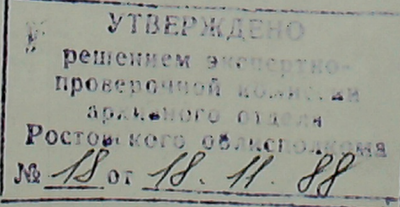 УТВЕРЖДЕНО
решением экспертно-
проверочной комиссии
архивного отдела
Ростовского облисполкома
№ 18 от 18.11.88